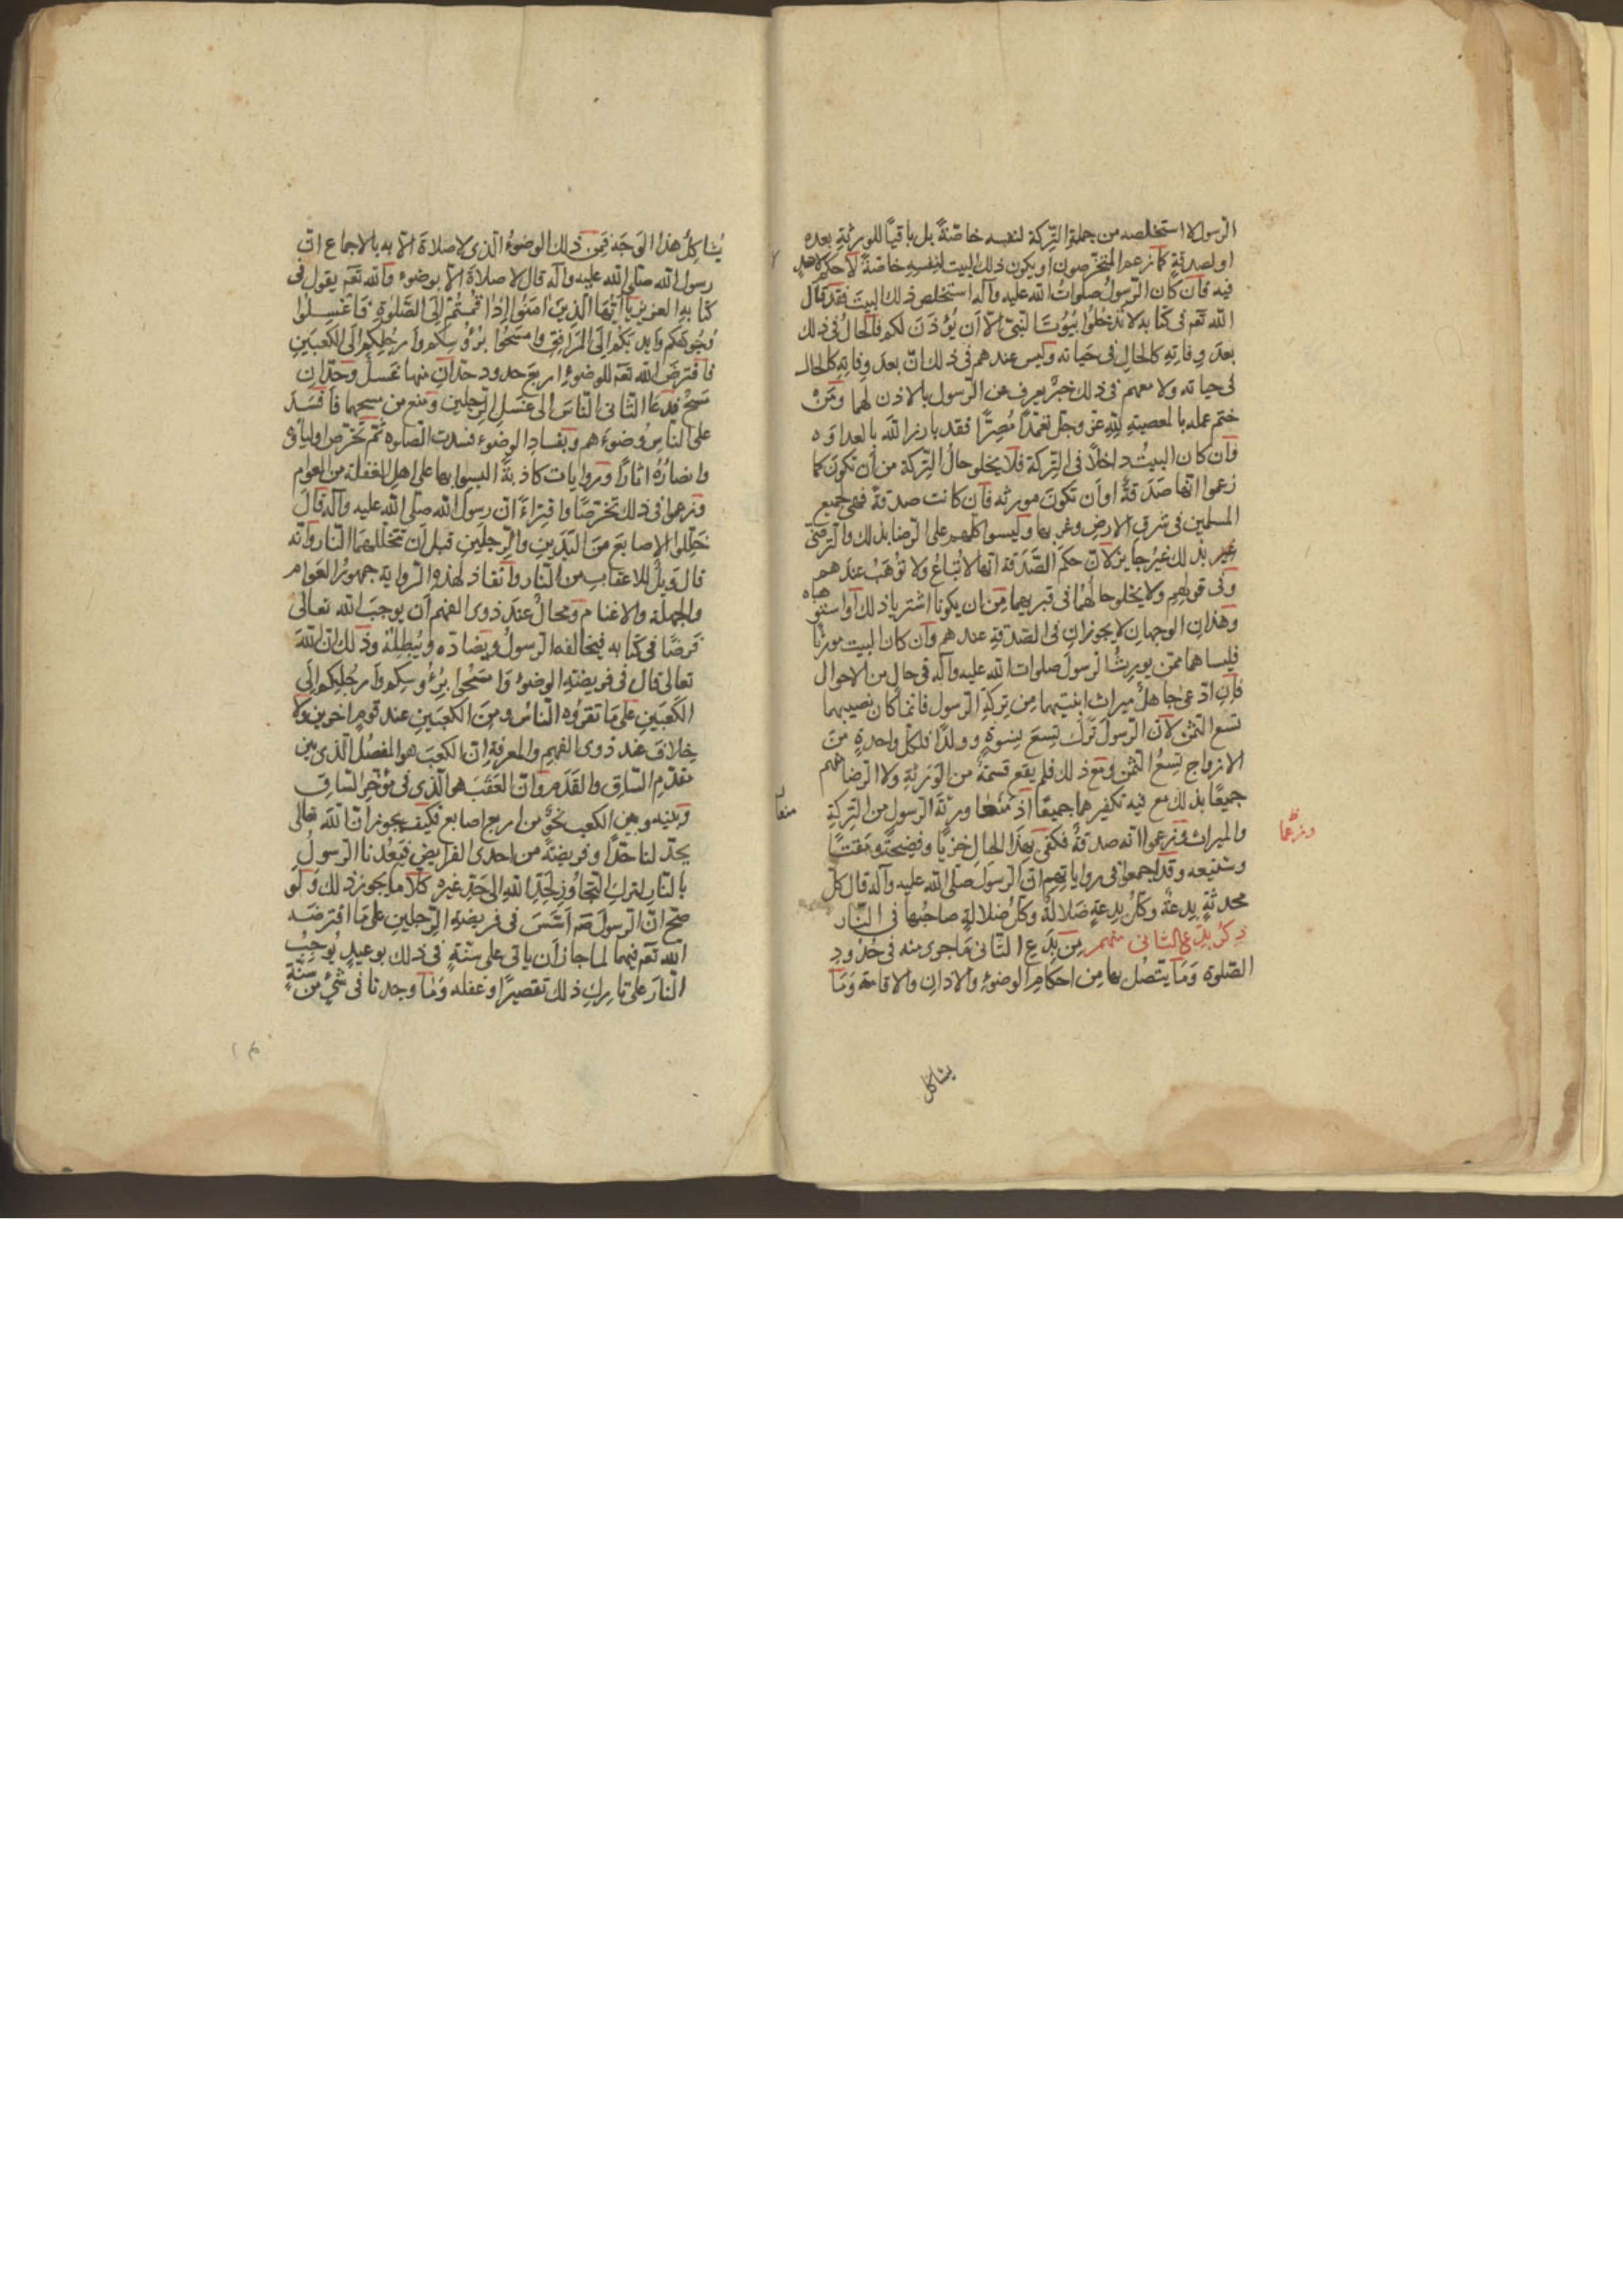 الرسول لا استخلصه من جملة التركة لنفسه خاصّةً بل باقيًا للورثةِ بعده
او لصدقةٍ كما زعم المتخرصون او يكون ذلك البيت لنفسِهِ خاصّةً لا حكم لاحدٍ
فيه فان كان الرسولُ صلواتُ الله عليه وآله استخلص ذلك البيتَ فقد قال
الله تعم فى كتابه لا تدخلُوا بُيُوتَ النبىّ الّا اَن يُؤذَنَ لكم فالحالُ فى ذلك
بعدَ وفاتِهِ كالحالِ فى حَياته وليس عندهم فى ذلك انّ بعدَ وفاتِهِ كالحال
فى حياته ولا معهم فى ذلك خبرٌ يعرف عن الرسول بالاذن لهما ومَنْ
ختم عمله بالمعصيةِ للهِ عزّ وجلّ تعمّدًا مُصِرًّا فقد بارز الله بالعداوه
فان كان البيتُ داخلًا فى التركة فلا يخلو حالُ التركة من أن تكونَ كما
زعموا انّها صَدَقةٌ او اَن تكونَ مورثه فان كانت صدقةً فهى لجميع
المسلمين فى شرق الارض وغربها وليسوا كلهم على الرضا بذلك والترضّى
غير بذلك غيرُ جايز لانّ حكمَ الصَّدَقة انّها لا تُباعُ ولا تُوهَبُ عندهم
وفى قولهم ولا يخلو حالُهما فى قبريهما مِن ان يكونا اشتريا ذلك او استوهباه
وهذانِ الوجهانِ لا يجوزانِ فى الصّدقةِ عندهم وان كان البيت مورثًا
فليسا هما ممّن يورِثُ الرسولَ صلوات الله عليه وآله فى حالٍ من الاحوال
فإن ادّعى جاهلٌ ميراث ابنتيهما مِن تركةِ الرسول فانّما كان نصيبهما
تسع الثمن لانّ الرسولَ تَرَكَ تِسعَ نِسوةٍ وولدًا فلكلّ واحدةٍ من
الازواجِ تِسعُ الثمن ومع ذلك فلم يقع قسمةٌ من الوَرَثةِ ولا الرضا منهم
جميعًا بذلك مع فيه تكفيرهما جميعًا اذ مَنَعا ورثةَ الرسول من التركةِ
منعا
والميراث وزعموا انّه صدقةٌ فكفى بهذا الحال خزيًا وفضيحةً ومقتًا
وزعما
وشنيعه وقد اجمعوا فى رواياتهم انّ الرسولَ صلّى الله عليه وآله قال كلّ
محدثةٍ بِدعةٌ وكلّ بِدعةٍ ضلالةٌ وكلّ ضلالةٍ صاحبُها فى النّار
ذِكرُ بِدَعِ الثانى منهم مِن بِدَعِ الثانى ما جرى منه فى حُدُودِ
الصّلوةِ وَمَا يتّصل بها مِن احكامِ الوضوءِ والاذانِ والاقامةِ وَمَا
يشاكل
يُشاكِلُ هذا الوَجهَ فمِن ذلك الوضوءُ الذى لا صلاةَ الّا به بالاجماع انّ
رسول الله صلّى الله عليه وآله قال لا صلاةَ الّا بوضوءٍ والله تعم يقول فى
كتابهِ العزيز يا اَيّها الّذينَ امنُوا اِذا قُمتُم اِلَى الصَّلوةِ فاغسِلُوا
وُجُوهَكم وايديَكُم اِلَى المَرافِقِ وامسَحُوا برُؤُوسِكُم واَرجُلِكُم اِلَى الكَعبَينِ
فافترضَ الله تعم للوضوءِ اربع حدود حدّانِ منها غسلٌ وحدّان
مَسحٌ فدعَا الثانى الناسَ الى غَسلِ الرّجلين ومنع من مسحِهما فاَفسَدَ
على الناسِ وُضوءَهم وبفسادِ الوضوءِ فسدت الصلوه ثمّ تخرّص اولياؤه
وانصارُهُ اثارًا وروايات كاذبةً البسوا بها على اهل الغفلة من العوام
وزعموا فى ذلك تخرّصًا وافتراءً انّ رسول الله صلّى الله عليه وآله قالَ
خلّلوا الاصابعَ منَ اليَدينِ والرّجلَينِ قبل اَن تخلّلهما النار وانّه
قال وَيلٌ للاعقابِ من النّار وانقاذ لهذهِ الرواية جمهورُ العَوام
والجملة والاغنام ومحالٌ عند ذوى الفهم اَن يوجبَ الله تعالى
فرضًا فى كتابه فيخالفه الرسولُ ويضادّه ويُبطِلهُ وذلك انّ اللهَ
تعالى قال فى فريضةِ الوضوء وَامسَحُوا برُءُوسِكُم واَرجُلِكُم اِلَى
الكَعبَينِ على مَا تقرؤه الناسُ ومِنَ الكعبَينِ عند قومٍ اخرين ولا
خلافَ عند ذوى الفهم والمعرفة انّ الكعبَ هو المفصلُ الذى بين
مقدّم الساقِ والقَدَم وانّ العَقَبَ هو الّذى فى مؤخّر الساقِ
وبينه وبين الكعب نحوٌ من اربع اصابع فكيف يجوز انّ الله تعالى
يحدّ لنا حدًّا وفريضةً من احدى الفرايض فيَعِدُنا الرسولُ
بالنّارِ لتركِ التجاوزِ لحَدِّ اللهِ الى حَدِّ غيرهِ كلّا ما يجوز ذلك وَلَو
صحّ انّ الرسولَ صم اَسّسَ فى فريضةِ الرّجلين على مَا افترضَه
الله تعم فيهما لما جاز أن ياتى على سنّةٍ فى ذلك بوعيدٍ يُوجِبُ
النّارَ على تاركِ ذلك تقصيرًا او غفله وَمَا وجدنا فى شىءٍ من سنّةٍ